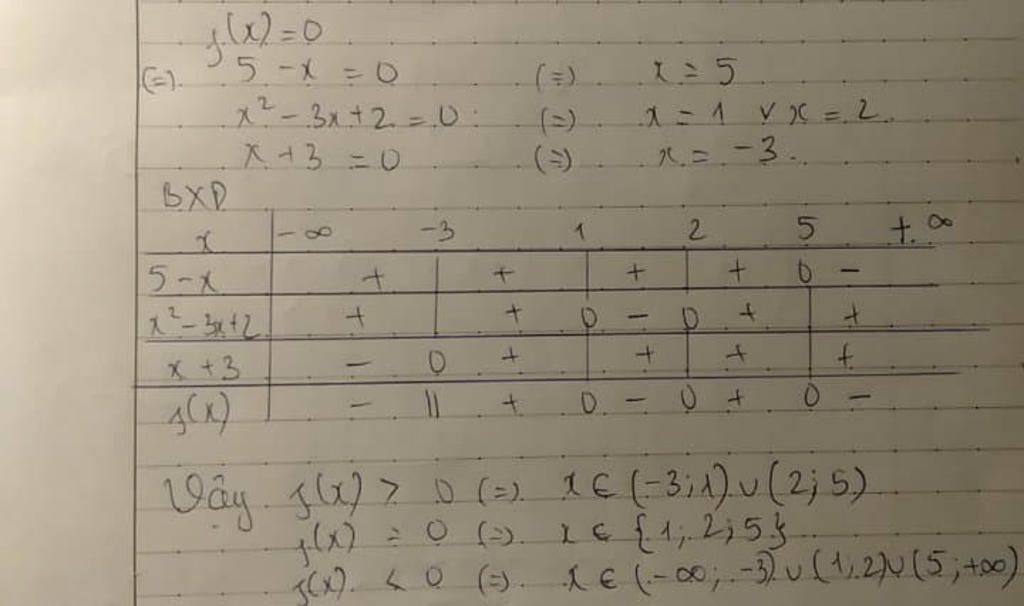 f(x) = 0
(=) 5 - x = 0 (=) x = 5
x² - 3x + 2 = 0 : (=) x = 1 v x = 2
x + 3 = 0 (=) x = -3.
BXD
x -∞ -3 1 2 5 +∞
5 - x + | + | + | + 0 -
x² - 3x + 2 + | + 0 - 0 + | +
x + 3 - 0 + | + | + | +
f(x) - || + 0 - 0 + 0 -
Vậy f(x) > 0 (=) x ∈ (-3; 1) ∪ (2; 5)
f(x) = 0 (=) x ∈ {1; 2; 5}
f(x) < 0 (=) x ∈ (-∞; -3) ∪ (1; 2) ∪ (5; +∞)